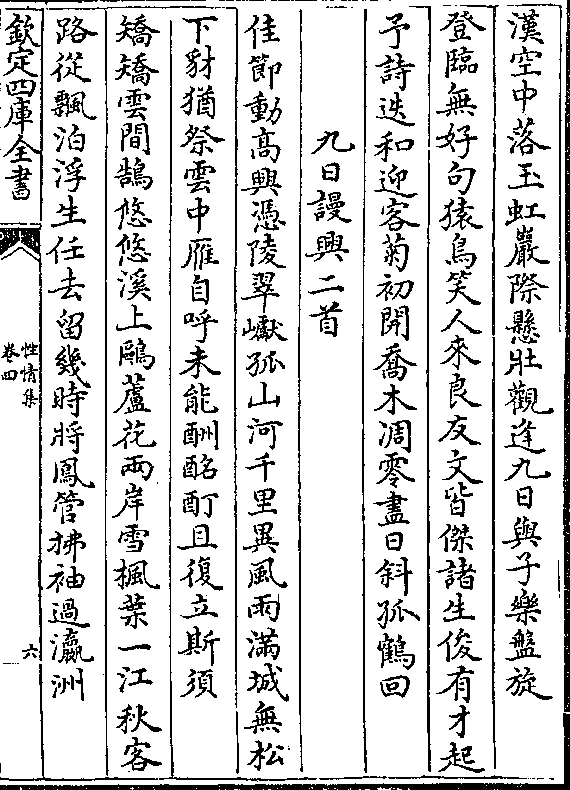 漢空中落玉虹巖際懸壯觀逢九日與子樂盤旋
登臨無好句猿鳥笑人來良友文皆傑諸生俊有才起
予詩迭和迎客菊初開喬木凋零盡日斜孤鶴回
九日謾興二首
佳節動高興憑陵翠巘孤山河千里異風雨滿城無松
下豺猶祭雲中雁自呼未能酬酩酊且復立斯須
矯矯雲間鵠悠悠溪上鷗蘆花兩岸雪楓葉一江秋客
路從飄泊浮生任去留幾時將鳳管拂袖過瀛洲
欽定四庫全書
性情集
卷四
六